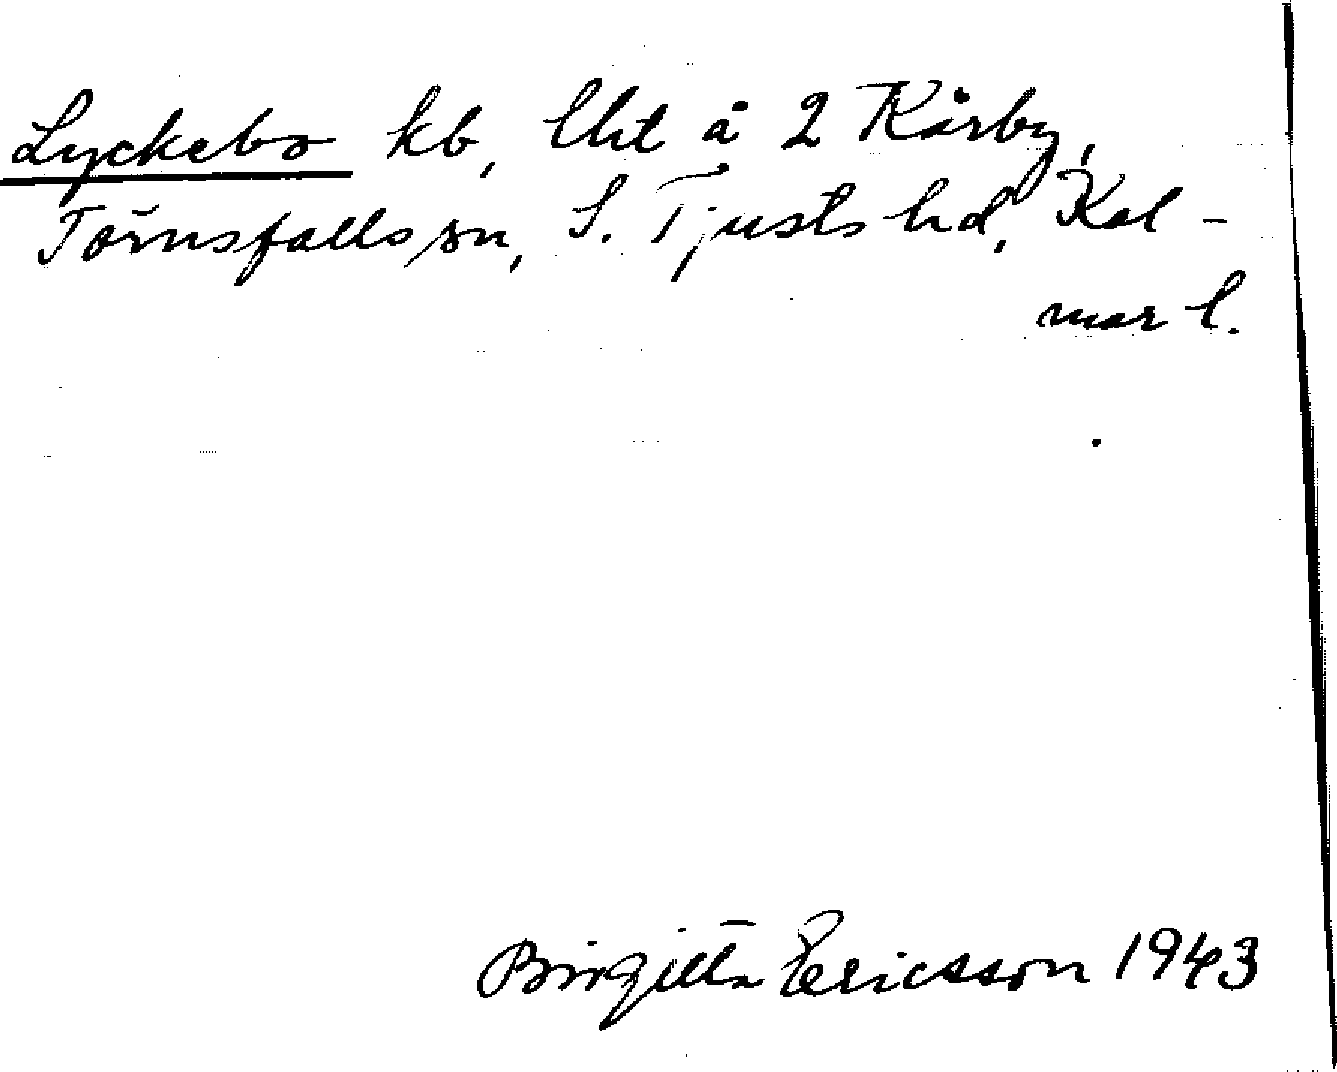 Lyckebo kb, lht å 2 Kårby,
Törnsfalls sn, S. Tjusts hd, Kal-
mar l.
Birgitta Ericsson 1943